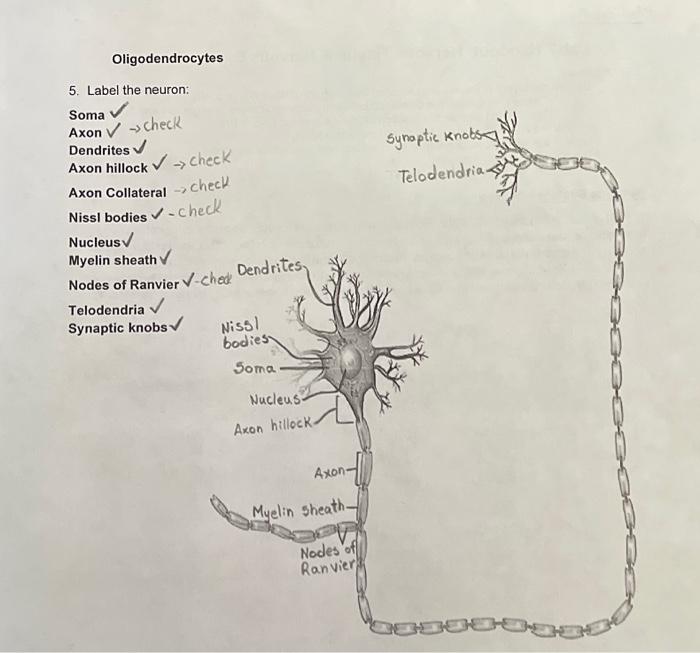 Oligodendrocytes
5. Label the neuron:
Soma ✓
Axon ✓ → check
Dendrites ✓
Axon hillock ✓ → check
Axon Collateral → check
Nissl bodies ✓ - check
Nucleus ✓
Myelin sheath ✓
Nodes of Ranvier ✓ - check
Telodendria ✓
Synaptic knobs ✓
Synaptic Knobs
Telodendria
Dendrites
Nissl
bodies
Soma
Nucleus
Axon hillock
Axon
Myelin sheath
Nodes of
Ranvier